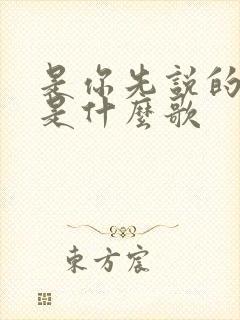 是你先說的
是什麼歌
東方宸